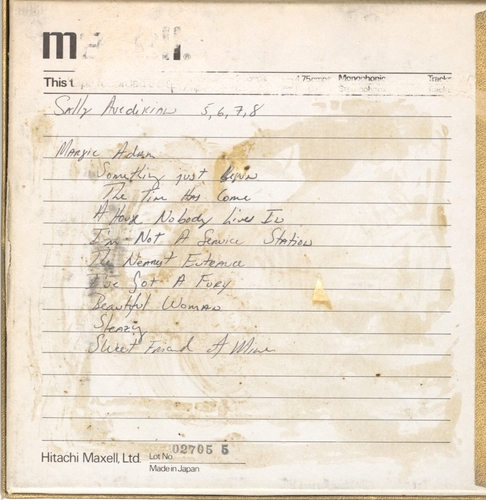 m    l.®
This t    4.75cm/s Monophonic Tracks
Sally Avedikian 5,6,7,8
Margie Adam
Something Just Begun
The Time Has Come
A House Nobody Lives In
I'm Not A Service Station
The Nearest Entrance
I've Got A Fury
Beautiful Woman
Sleazy
Sweet Friend of Mine
Hitachi Maxell, Ltd. Lot No. 02705 5
Made in Japan